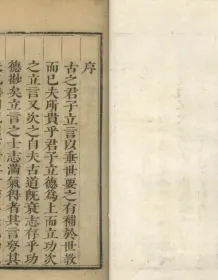 序
古之君子立言以垂世要之有補於世教
而已夫所貴乎君子立德為上而立功次
之立言又次之自夫古道既衰志存乎功
德矣立言之士志滿氣得者其言夸其